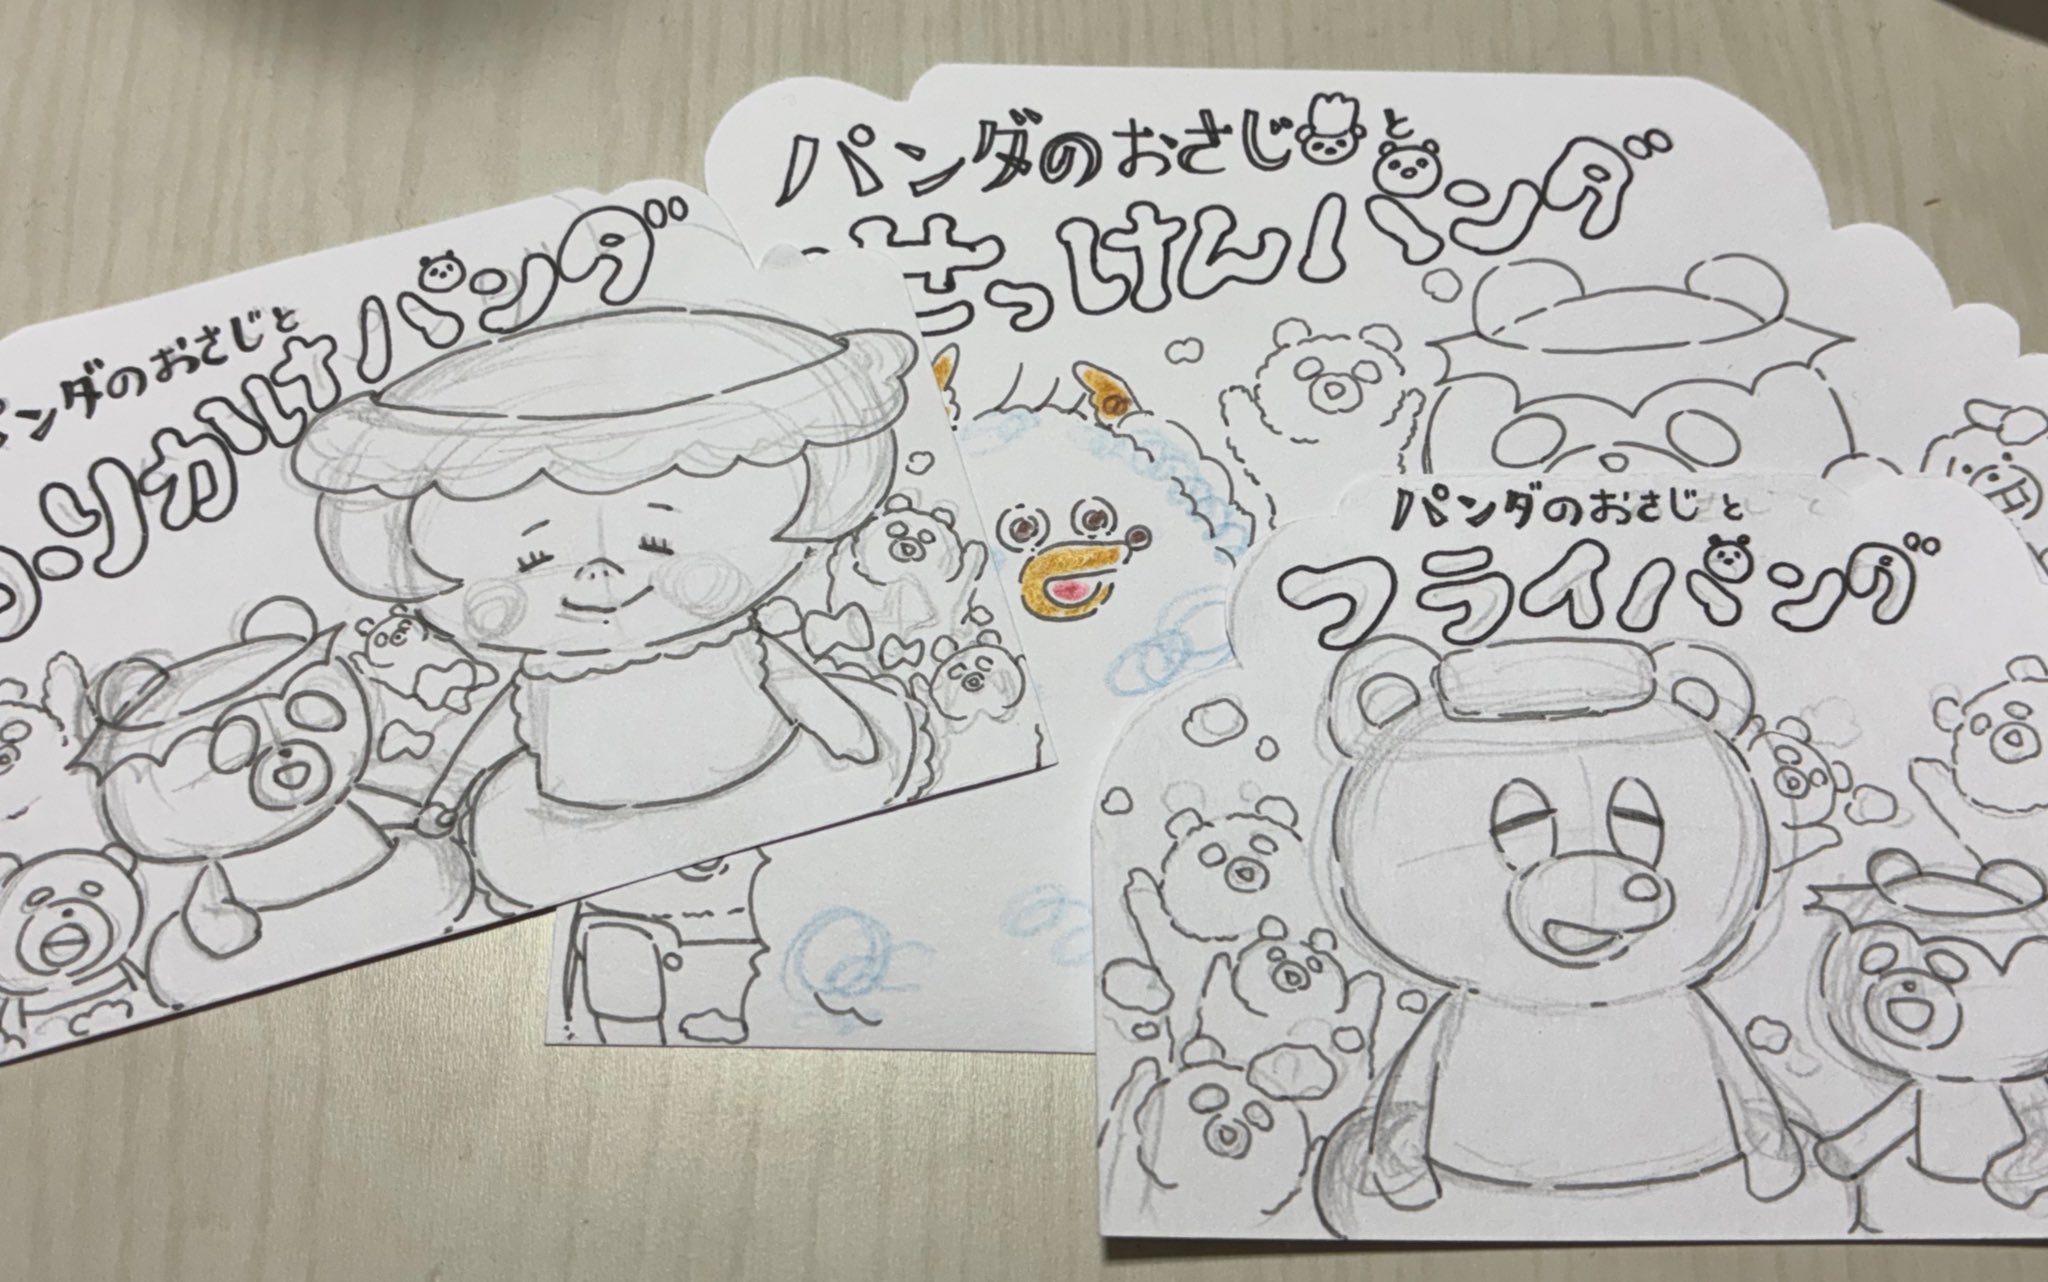 パンダのおさじと
ふりかけパンダ
パンダのおさじと
せっけんパンダ
パンダのおさじと
フライパンダ